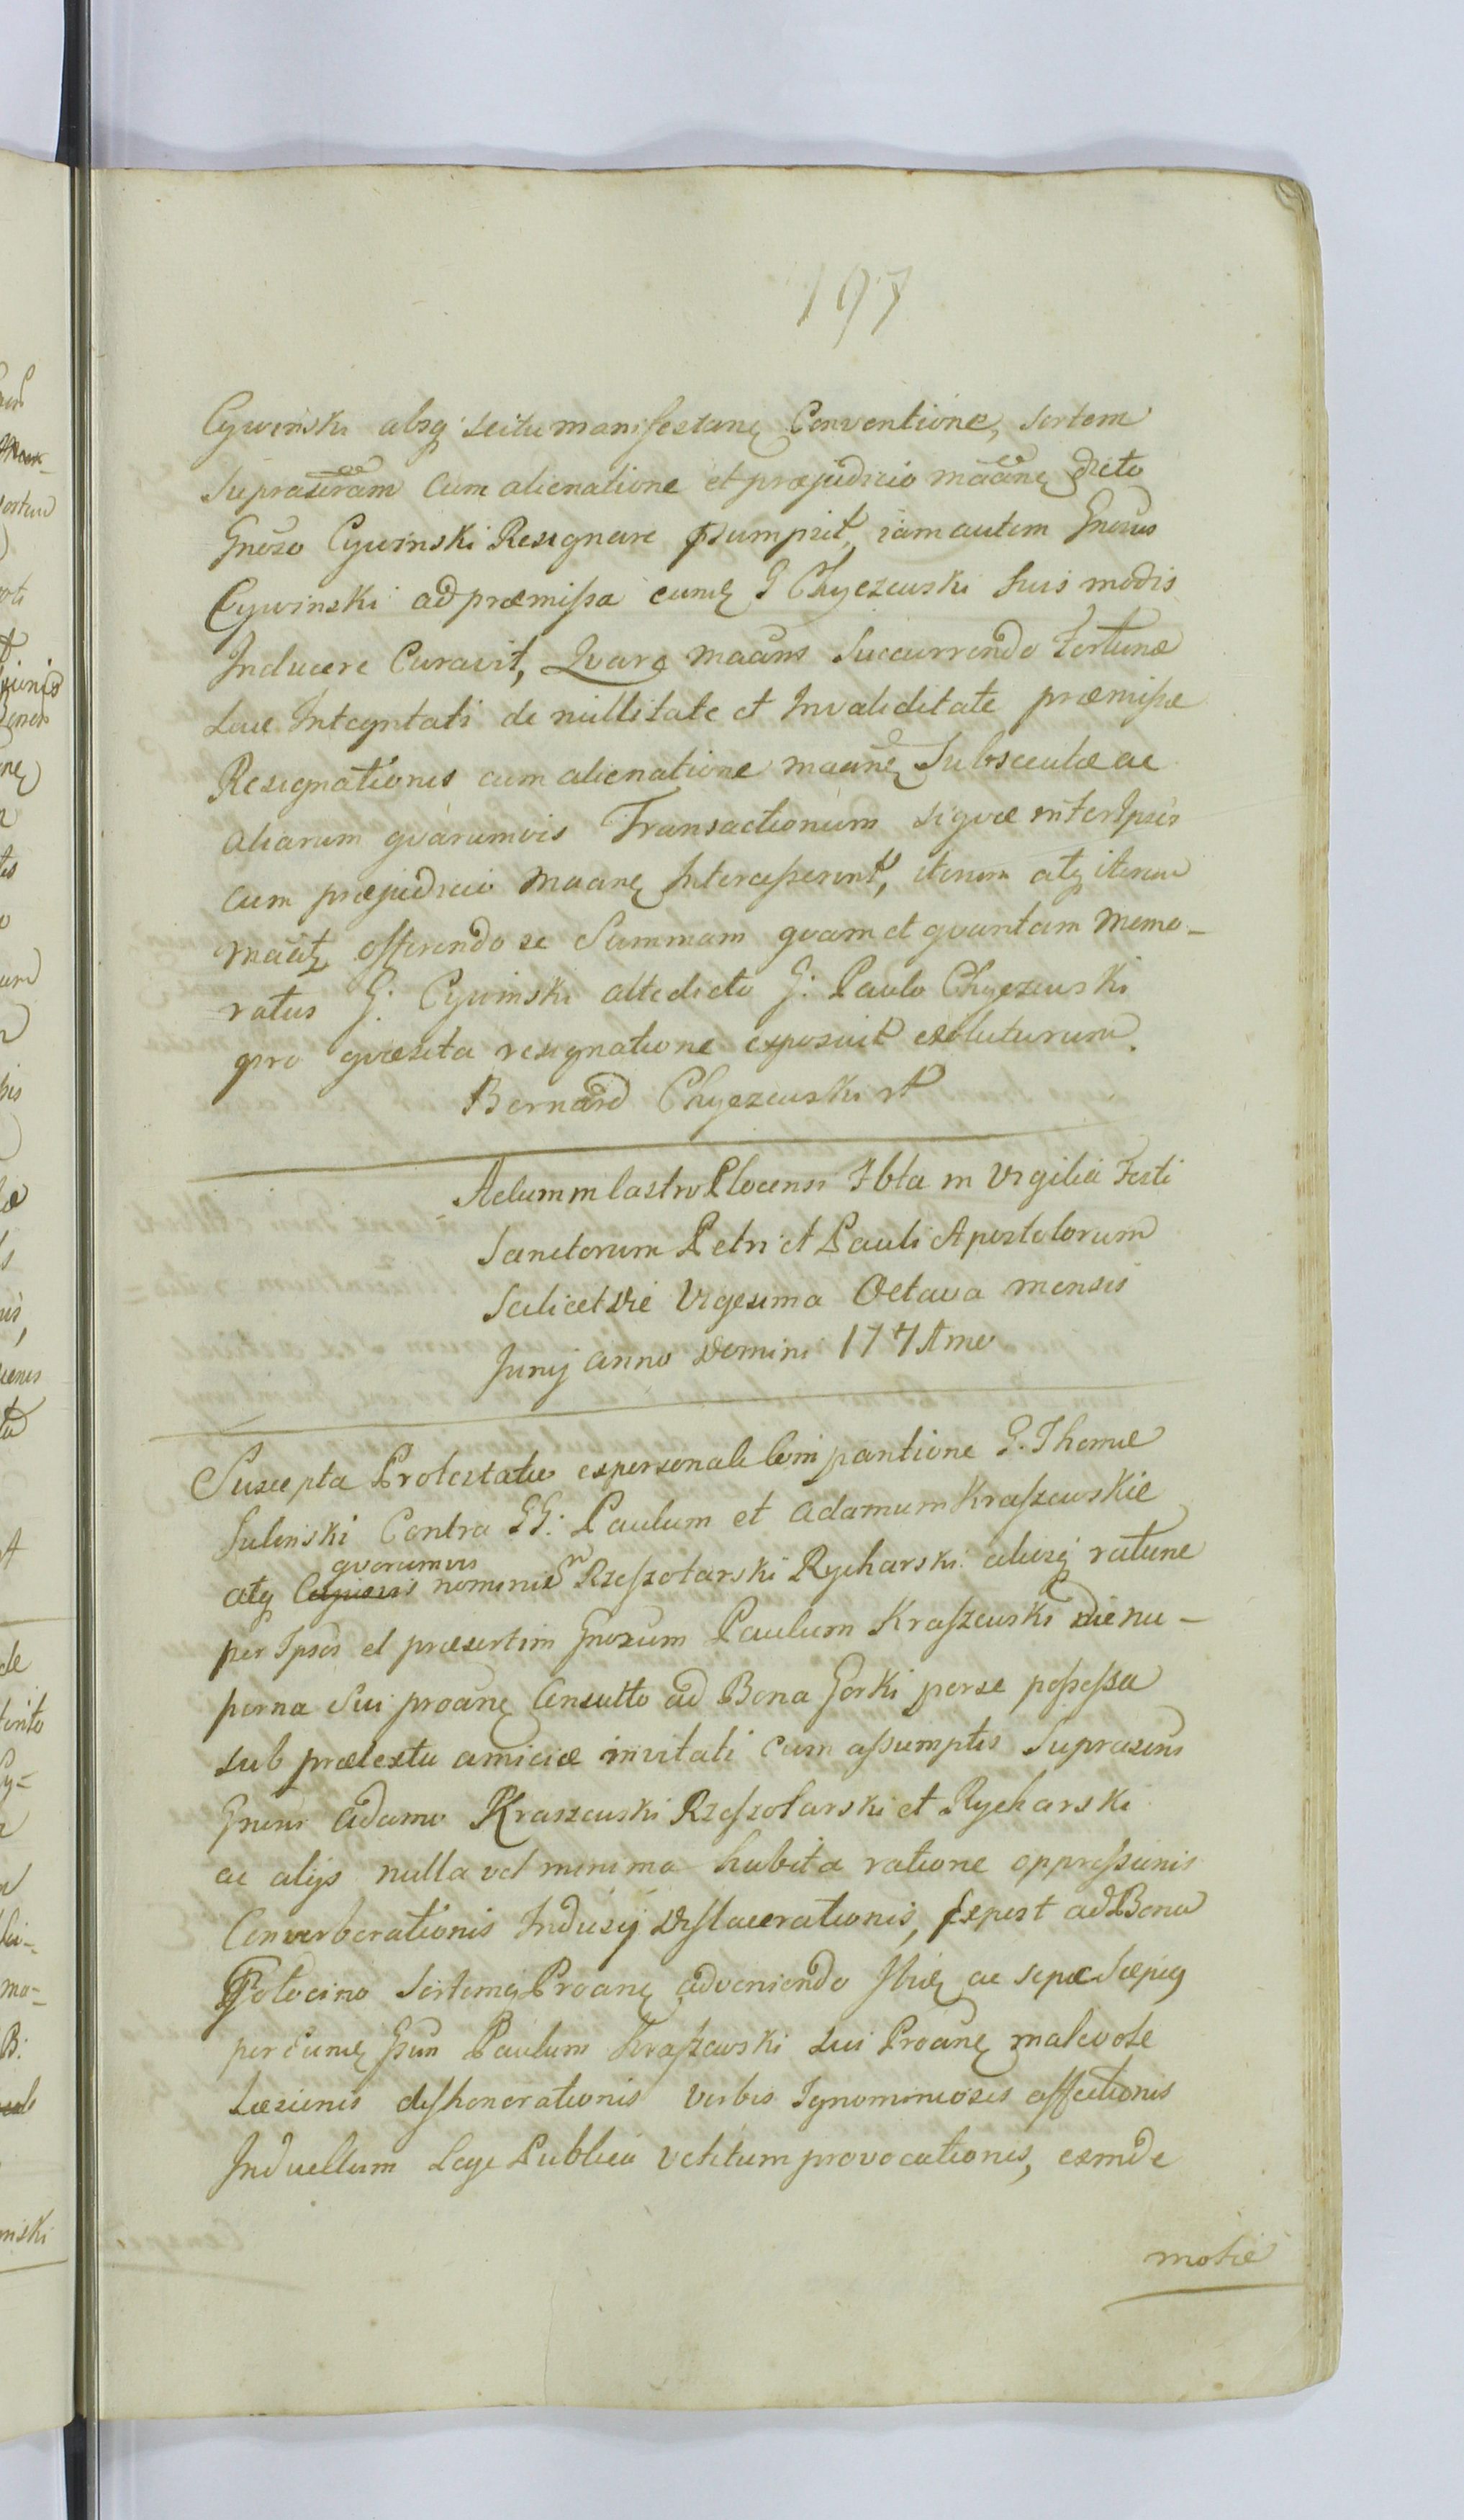 197
Cywinski absq; scitu manifestanẽ Conventione, sortem
Suprascram cum alienatione et præjudicio maãnẽ dicto
Gnoso Cywinski Resignare psumpsit, iam autem Gnosus
Cywinski ad præmissa eumq; G Chyczewski suis modis
Inducere Curavit, Qvare maans Succurrendo Fortunæ
suæ Integritati de nullitate et Invaliditate præmissæ
Resignationis cum alienatione maanẽ Subsecutæ ac
aliarum qvarumvis Transactionum siqvæ inter Ipsos
cum præjudicio maanẽ Intercesserint, iterum atq; iterum
maãt, offerendo se Summam qvam et qvantam memo-
ratus G: Cywinski altedicto G: Paulo Chyczewski
pro qvæsita resignatione exposuit exoluturum.
Bernard Chyczewski
Actum in Castro Plocensi Fbta in Vigilia Festi
Sanctorum Petri et Pauli Apostolorum
Scilicet die Vigesima Octava mensis
Junij anno Domini 177
Suscepta Protestatio ex personali Comparitione G. Thomæ
Sulinski Contra GG: Paulum et Adamum Kraszewskie
atq; qvorumvis nominis Rzeszotarski Rycharski aliosq; ratione
per Ipsos et præsertim Gnosum Paulum Kraszewski die nu-
perna Sui proãnẽ Consulto ad Bona Gorki per se possessa
sub prætextu amiciæ invitati cum assumptis Suprascris
Gnosis Adamo Kraszewski Rzeszotarski et Rycharski
ac alijs nulla vel minima habita ratione oppressionis
Converberationis Indusij Dislacerationis, expost ad Bona
Gotocino Sortemq; Proanẽ adveniendo Ibiq; ac sepæ Sæpiq;
per eumq; Gsum Paulum Kraszewski sui Proãnẽ malevole
Læsionis dishonorationis verbis Ignominiosis affectionis
In duellum Lege Publica vetitum provocationis, exinde
motiæ